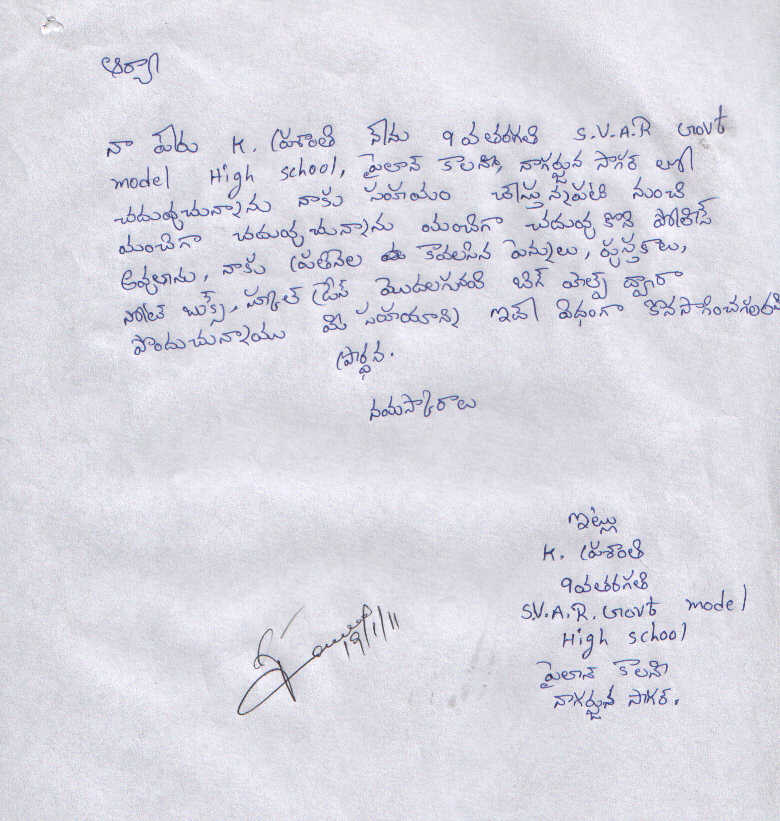 ఆర్యా
నా పేరు K. ప్రశాంతి నేను 9వ తరగతి S.V.A.R Govt
model High school, పైలాన్ కాలనీ, నాగర్జున సాగర్ లో
చదువుచున్నాను నాకు సహాయం చేస్తున్నపటి నుంచి
మంచిగా చదువుచున్నాను మంచిగా చదువుకొని పోలీస్
అవుతాను, నాకు ప్రతినెల కావలసిన పెన్నులు, పుస్తకాలు,
నోట్ బుక్స్, స్కూల్ డ్రేస్ మొదలగునవి బిగ్ హెల్ప్ ద్వారా
పొందుచున్నాము మీ సహయాన్ని ఇదే విధంగా కొనసాగించగలరని
ప్రార్థన.
నమస్కారాలు
ఇట్లు
K. ప్రశాంతి
9వ తరగతి
S.V.A.R. Govt model
High school
పైలాన్ కాలనీ
నాగర్జున సాగర్.
19/1/11